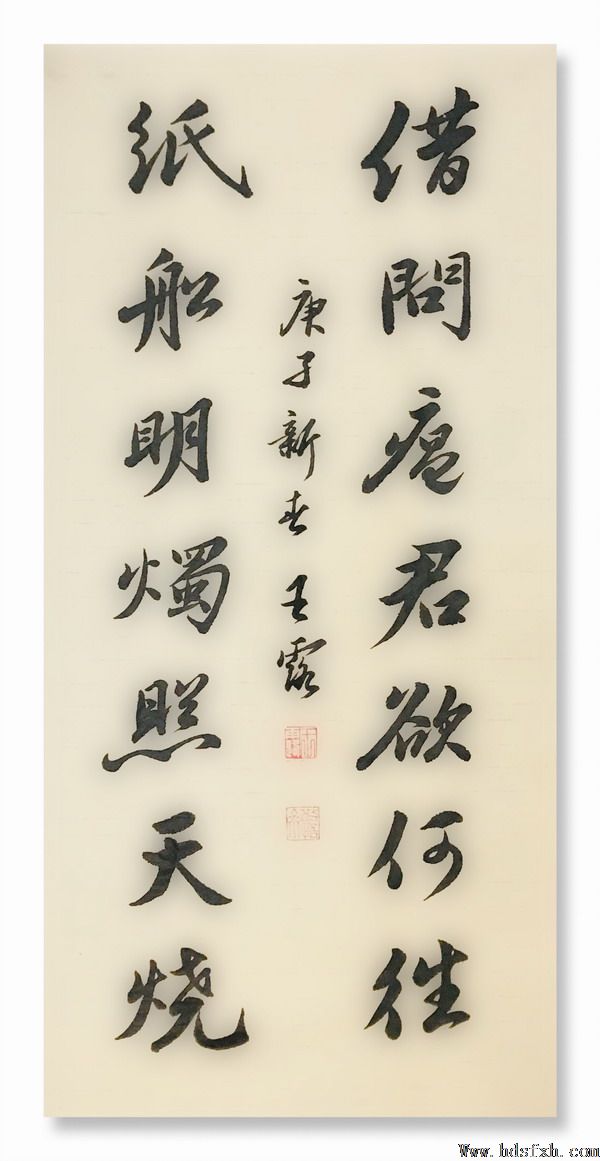 借問瘟君欲何往
庚子新春 王露
紙船明燭照天烧
Www.hdsfxh.com